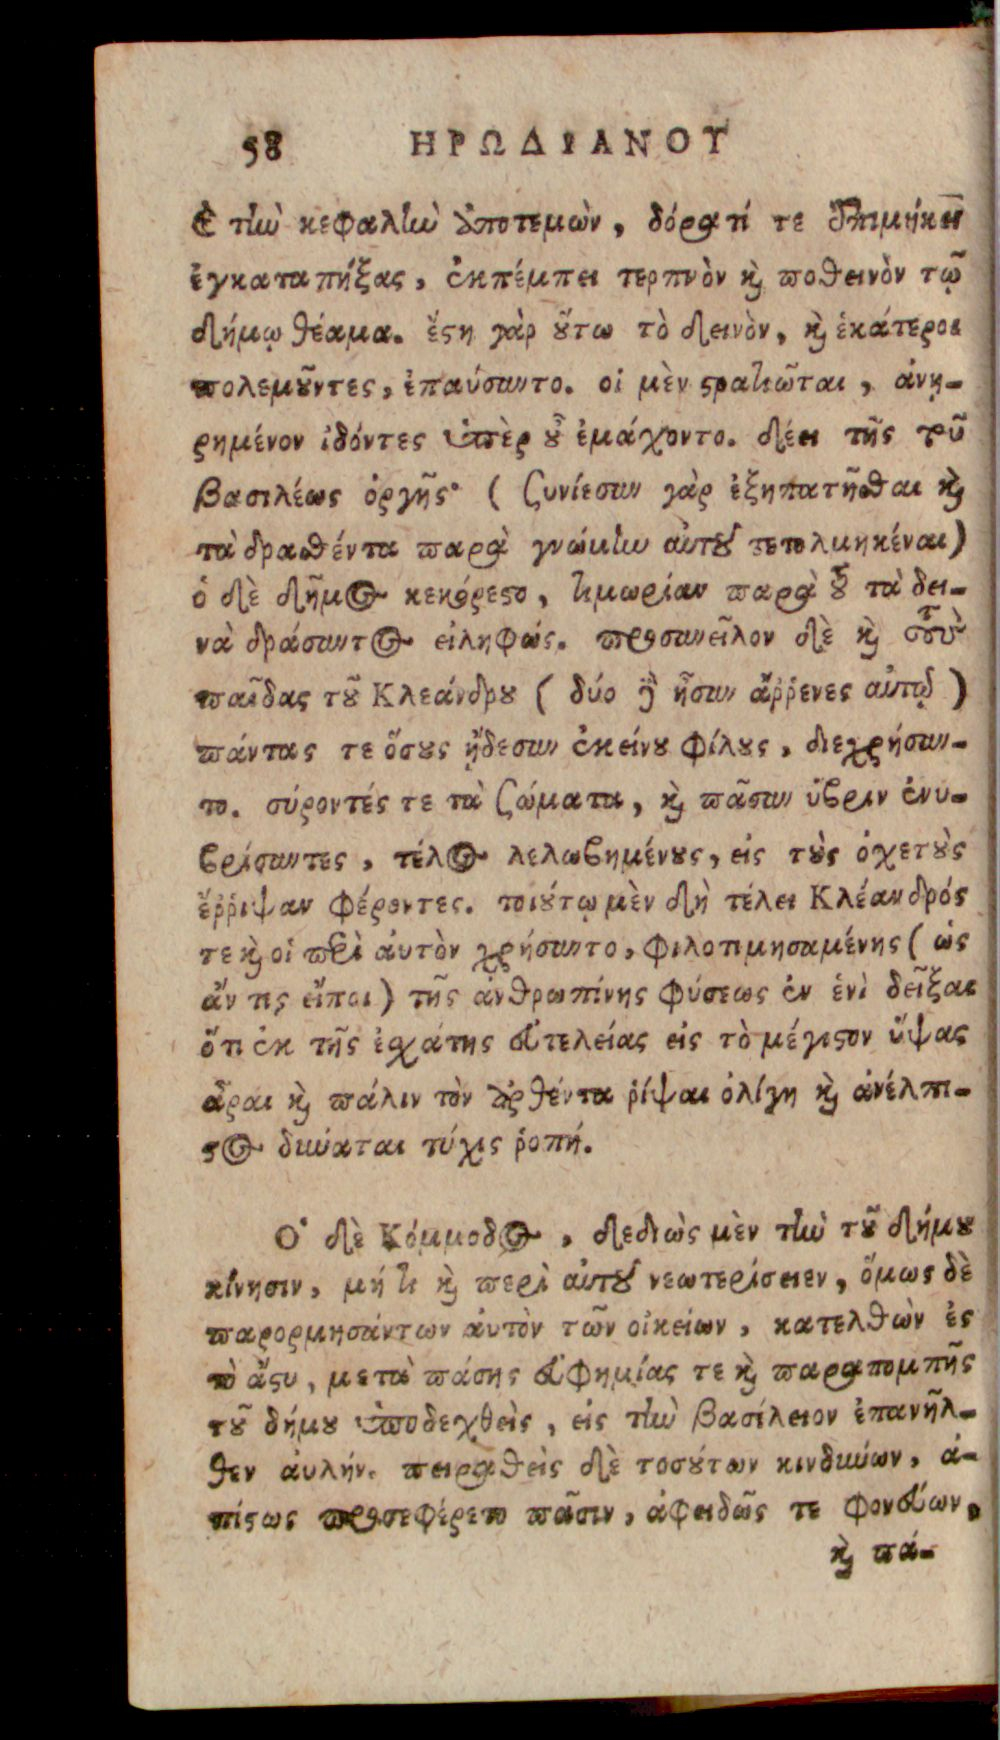 58 ΗΡΩΔΙΑΝΟΥ
ἐ τὴν κεφαλὴν ἀποτεμὼν, δόρατί τε ἐπιμήκει
ἐγκαταπήξας, ἐκπέμπει τερπνὸν ϗ ποθεινὸν τῷ
δήμῳ θέαμα. ἔϛη γὰρ ὅτω τὸ δεινὸν, ϗ ἑκάτεροι
πολεμοῦντες, ἐπαύσαντο. οἱ μὲν ϛρατιῶται, ἀνῃ-
ρημένον ἰδόντες ὑπὲρ οὗ ἐμάχοντο. δέει τῆς τοῦ
βασιλέως ὀργῆς· (ξυνίεσαν γὰρ ἐξηπατῆσθαι ϗ
τὰ δρασθέντα παρὰ γνώμην αὐτοῦ τετολμηκέναι)
ὁ δὲ δῆμος κεκόρεϛο, τιμωρίαν παρὰ τοῦ τὰ δει-
νὰ δράσαντος εἰληφώς. προσανεῖλον δὲ ϗ τοὺς
παῖδας τοῦ Κλεάνδρου (δύο δὲ ἦσαν ἄῤῥενες αὐτῷ)
πάντας τε ὅσους ᾔδεσαν ἐκείνου φίλους, διεχρήσαν-
το. σύροντές τε τὰ σώματα, ϗ πᾶσαν ὕβριν ἐνυ-
βρίσαντες, τέλος λελωβημένους, εἰς τοὺς ὀχετοὺς
ἔῤῥιψαν φέροντες. τοιούτῳ μὲν δὴ τέλει Κλέανδρός
τε ϗ οἱ περὶ ἀυτὸν χρήσαντο, φιλοτιμησαμένης (ὡς
ἄν τις εἴποι) τῆς ἀνθρωπίνης φύσεως ἐν ἑνὶ δεῖξαι
ὅτι ἐκ τῆς ἐσχάτης εὐτελείας εἰς τὸ μέγιϛον ὕψος
ἆραι ϗ πάλιν τὸν ἀρθέντα ῥίψαι ὀλίγη ϗ ἀνέλπι-
ϛος δύναται τύχης ῥοπή.
Ὁ δὲ Κόμμοδος, δεδιὼς μὲν τὴν τοῦ δήμου
κίνησιν, μή τι ϗ περὶ αὐτοῦ νεωτερίσειεν, ὅμως δὲ
παρορμησάντων ἀυτὸν τῶν οἰκείων, κατελθὼν ἐς
τὸ ἄϛυ, μετὰ πάσης εὐφημίας τε ϗ παραπομπῆς
τοῦ δήμου ὑποδεχθεὶς, εἰς τὴν βασίλειον ἐπανῆλ-
θεν ἀυλήν. πειραθεὶς δὲ τοσούτων κινδύνων, ἀ-
πίϛως προσεφέρετο πᾶσιν, ἀφειδῶς τε φονεύων,
ϗ πά-